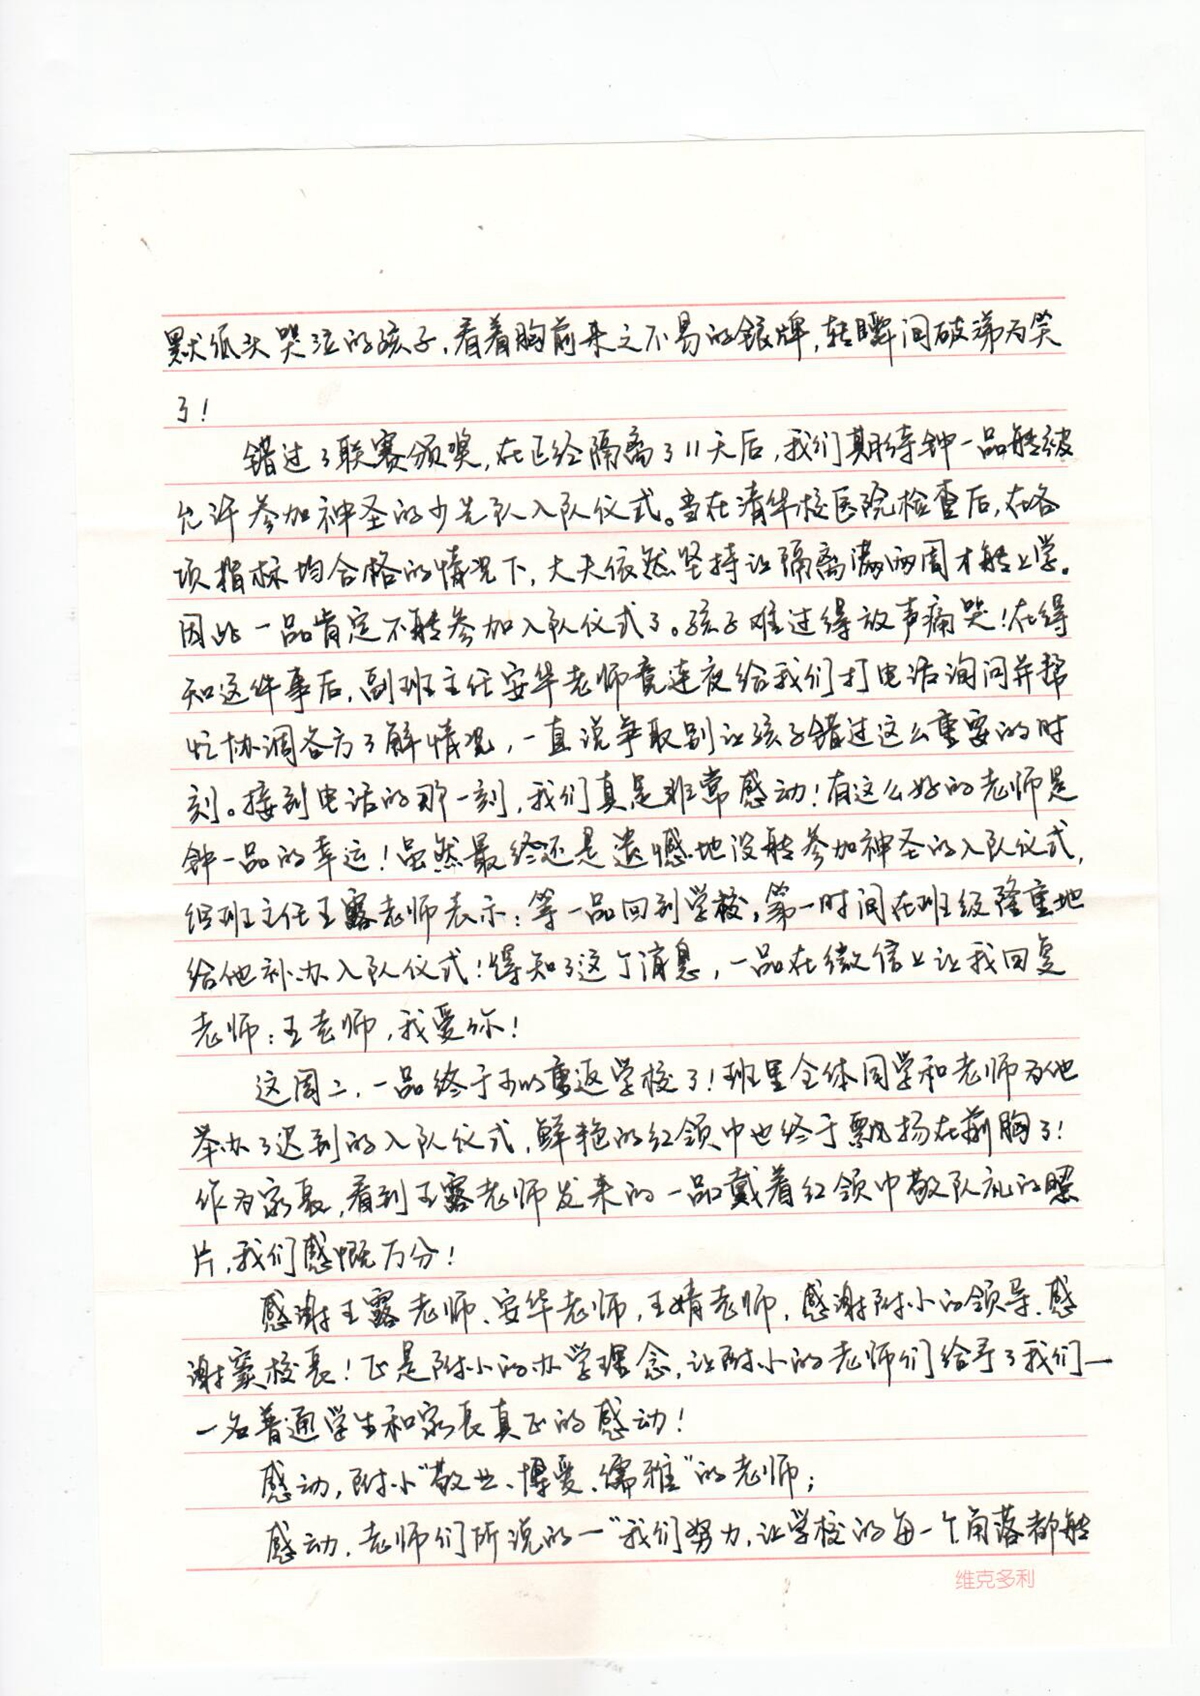 默低头哭泣的孩子,看着胸前来之不易的银牌,转瞬间破涕为笑
了!
错过了联赛颁奖,在已经隔离了11天后,我们期待钟一品能被
允许参加神圣的少先队入队仪式。当在清华校医院检查后,在各
项指标均合格的情况下,大夫依然坚持让隔离满两周才能上学。
因此一品肯定不能参加入队仪式了。孩子难过得放声痛哭!在得
知这件事后,副班主任安华老师竟连夜给我们打电话询问并帮
忙协调各方了解情况,一直说争取别让孩子错过这么重要的时
刻。接到电话的那一刻,我们真是非常感动!有这么好的老师是
钟一品的幸运!虽然最终还是遗憾地没能参加神圣的入队仪式,
但班主任王露老师表示:等一品回到学校,第一时间在班级隆重地
给他补办入队仪式!得知了这个消息,一品在微信上让我回复
老师:王老师,我爱你!
这周二,一品终于如约重返学校了!班里全体同学和老师为他
举办了迟到的入队仪式,鲜艳的红领巾也终于飘扬在前胸了!
作为家长,看到王露老师发来的一品戴着红领巾敬队礼的照
片,我们感慨万分!
感谢王露老师、安华老师,王婧老师,感谢附小的领导、感
谢窦校长!正是附小的办学理念,让附小的老师们给予了我们一
一名普通学生和家长真正的感动!
感动,附小“敬业、博爱、儒雅”的老师;
感动,老师们所说的一“我们努力,让学校的每一个角落都能
维克多利